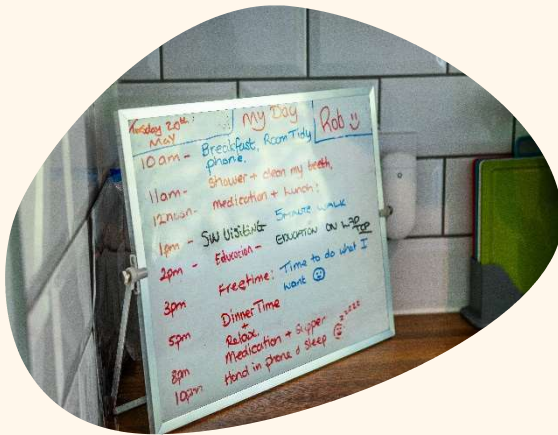 Tuesday 20th
May
My Day
Rob
10am - Breakfast, Room Tidy
phone.
11am - Shower + clean my teeth,
12noon - Medication + Lunch:
5 minute walk
1pm - SW VISITING
2pm - Education - EDUCATION ON
3pm Freetime: Time to do what I
want
5pm Dinner Time
+
Relax.
8pm Medication + Supper
10pm Hand in phone & sleep zzzz